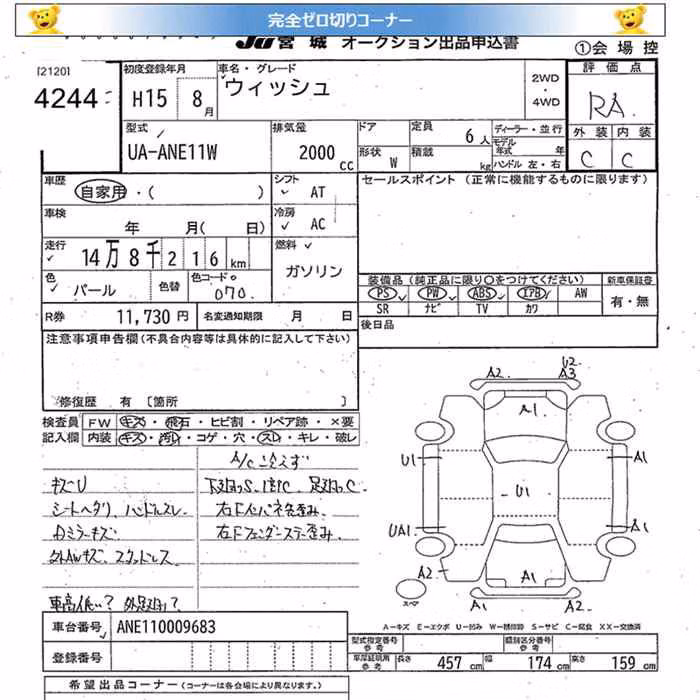 完全ゼロ切りコーナー
JU宮城 オークション出品申込書 ①会場控
[2120]
4244
初度登録年月 車名・グレード 2WD・4WD 評価点
H15 8月 ウィッシュ RA
型式 排気量 ドア 定員 6人 ディーラー・並行 外装 内装
UA-ANE11W 2000cc 形状 W 積載 kg モデル年式 年 ハンドル 左・右 C C
車歴 シフト セールスポイント (正常に機能するものに限ります)
自家用・( ) AT
車検 冷房
年 月( 日) AC
走行 燃料
14万8千216km ガソリン
色 色替 色コード 装備品 (純正品に限り○をつけてください) 新車保証書
パール 070 PS PW ABS エアB AW 有・無
SR ナビ TV カワ
R券 11,730円 名変通知期限 月 日 後日品
注意事項申告欄(不具合内容等は具体的に記入して下さい)
修復歴 有 [箇所
検査員 FW キズ・飛石・ヒビ割・リペア跡・×要
記入欄 内装 キズ・汚れ・コゲ・穴・スレ・キレ・破レ
A/C冷えず
キズU
シートヘタリ、ハンドルスレ
外AWキズ、スタッドレス
車高低い? 外足廻り?
車台番号 ANE110009683
登録番号
A2 U2 A3
A1
U1 A1
U1
UA1 A1
A2 A1
スペア A1 A2
A-キズ E-エクボ U-凹み W-補修跡 S-サビ C-腐食 XX-交換済
型式指定番号 参考 類別区分番号 参考
車庫証明用 参考 長さ 457cm 幅 174cm 高さ 159cm
希望出品コーナー (コーナーは各会場により異なります。)